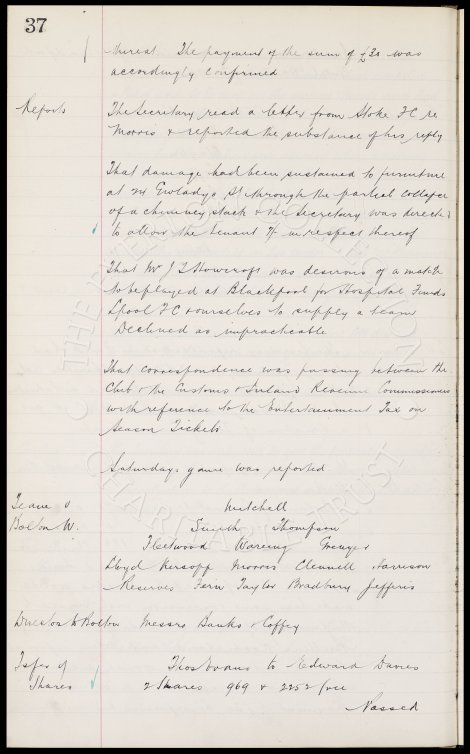 37
interest. The payment of the sum of £30 was
accordingly confirmed
Reports The Secretary read a letter from Stoke FC re
Morris & reported the substance of his reply
That damage had been sustained to furniture
at 24 Gwladys St through the partial collapse
of a chimney stack & the Secretary was directed
to allow the tenant in respect thereof
That Mr J T Howcroft was desirous of a match
to be played at Blackpool for Hospital Funds
Lpool FC & ourselves to supply a team
Declined as impracticable
That correspondence was passing between the
Club & the Customs & Inland Revenue Commissioners
with reference to the Entertainment Tax on
Season Tickets
Saturdays game was reported
Team v Mitchell
Bolton W. Smith Thompson
Fleetwood Wareing Grenyer
Lloyd Kirsopp Morris Clennell Harrison
Reserves Fern Taylor Bradbury Jefferis
Directors to Bolton Messrs Banks & Coffey
Tsfer of Thos Evans to Edward Davies
Shares 2 Shares 969 & 2252 free
Passed
THE EVERTON COLLECTION
CHARITABLE TRUST